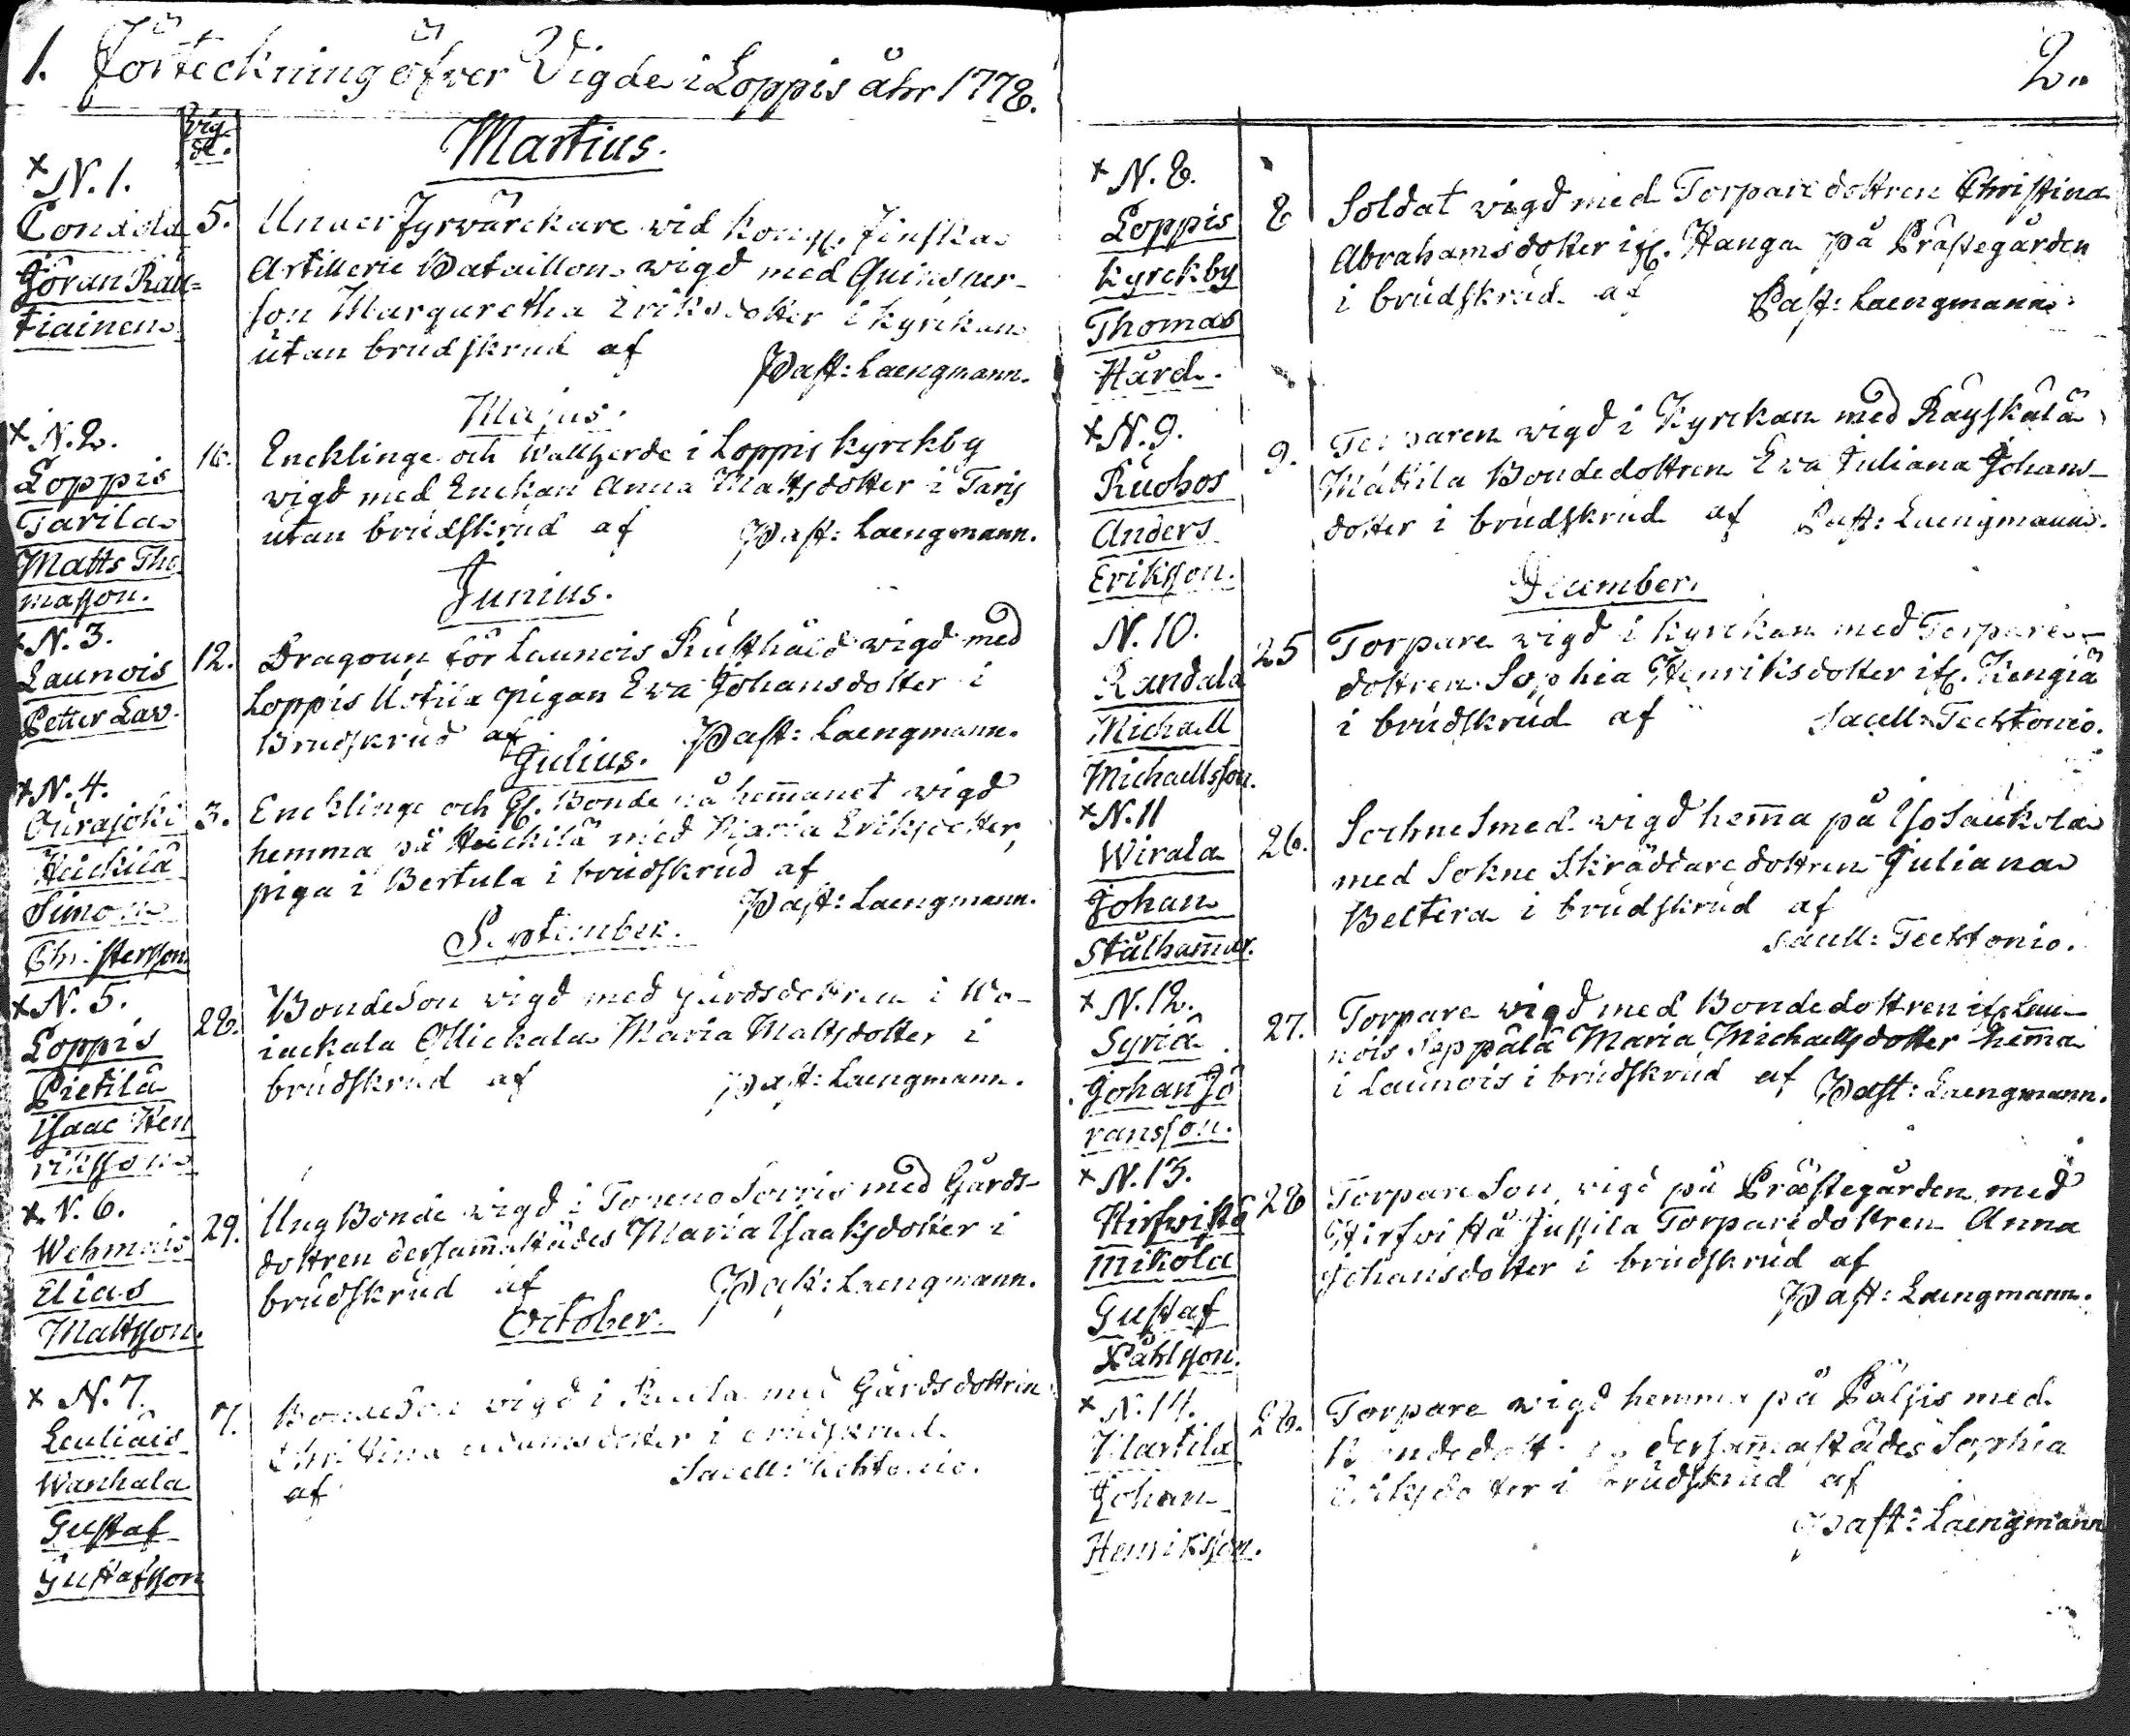 1. Förteckning öfver Vigde i Loppis åhr 1778.
Vig-
de.
Martius.
× N. 1.
Göran Rau=
tiainen
5. Under fyrwärckare wid Kongl. Finska
Artillerie Bataillon wigd med Quinsper-
son Margaretha Eriksdotter i kyrckan
utan brudskrud af
Past: Laengmann.
Majus.
× N. 2.
Loppis
Tarila
Matts Tho
masson.
16. Encklinge och Wallherde i Loppis kyrckby
wigd med Enckan Anna Mattsdotter i Taris
utan brudskrud af Past: Laengmann.
Junius.
× N. 3.
Launois
Petter Lav.
12. Dragoun för Launois Rusthåld wigd med
Loppis Uotila pigan Ewa Johansdotter i
Brudskrud af Past: Laengmann.
Julius.
× N. 4.
Ourajoki
Heickilä
Simon
Christersson
3. Encklinge och Bonde på hem̄anet wigd
hemma på Heickilä med Maria Eriksdotter,
piga i Bertula i brudskrud af
Past: Laengmann.
September.
× N. 5.
Loppis
Pietilä
Isaac Hen
riksson
28. Bondeson wigd med gårdsdottren i Wo-
iackala Ollickala Maria Mattsdotter i
brudskrud af Past: Laengmann.
× N. 6.
Wehmais
Elias
Mattsson.
29. Ung Bonde wigd i Toreno Sorris med Gårds-
dottren dersam̄astädes Maria Isaaksdotter i
brudskrud af Past: Laengmann.
October.
× N. 7.
Leuliäis
Wanhala
Gustaf
Gustafsson
7. Bondeson wigd i med Gårdsdottren
Christina Adamsdotter i brudskrud
af Sacell: Techtonio.
2.
× N. 8.
Loppis
Kyrckby
Thomas
Hård.
8 Soldat wigd med Torparedottren Christina
Abrahamsdotter ifr. Hanga på Prästegården
i brudskrud af Past: Laengmann.
× N. 9.
Ruohos
Anders
Eriksson.
9. Torparen wigd i Kyrckan med Räyskälä
Mattila Bondedottren Ewa Juliana Johans-
dotter i brudskrud af Past: Laengmann.
December.
N. 10.
Randala
Michaell
Michaellsson.
25 Torpare wigd i kyrckan med Torpare-
dottren Sophia Henriksdotter ifr. Kengiä
i brudskrud af Sacell: Techtonio.
× N. 11
Wirala
Johan
Stålham̄ar.
26. Sochne Smed wigd hem̄a på Iso Saukola
med Sokne Skräddaredottren Juliana
Beltera i brudskrud af
Sacell: Techtonio.
× N. 12.
Syriä
Johan Jö
ransson.
27. Torpare wigd med Bondedottren ifr. Lau-
nois Seppälä Maria Michaellsdotter hem̄a
i Launois i brudskrud af Past: Laengmann.
× N. 13.
Hirfwistö
Mikola
Gustaf
Påhlsson.
28 Torpare Son wigd på Prästegården med
Hirfwistä Jussila Torparedottren Anna
Johansdotter i brudskrud af
Past: Laengmann.
× N. 14.
Martila
Johan
Henriksson.
28. Torpare wigd hemma på Pälsis med
Bondedottren dersam̄astädes Sophia
Eriksdotter i brudskrud af
Past: Laengmann